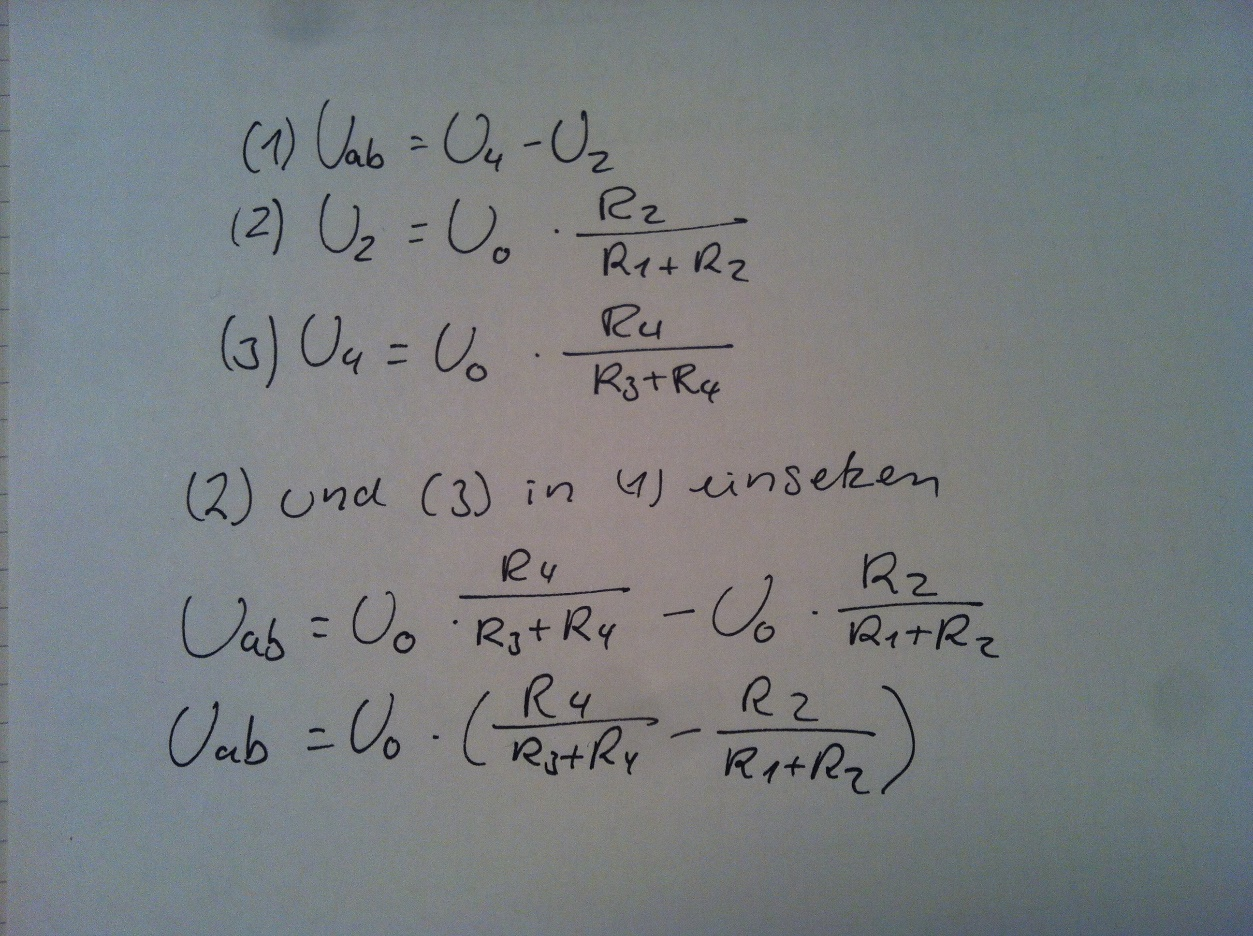 (1) Uab = U4 - U2
(2) U2 = U0 · R2 / (R1 + R2)
(3) U4 = U0 · R4 / (R3 + R4)
(2) und (3) in (1) einsetzen
Uab = U0 · R4 / (R3 + R4) - U0 · R2 / (R1 + R2)
Uab = U0 · (R4 / (R3 + R4) - R2 / (R1 + R2))